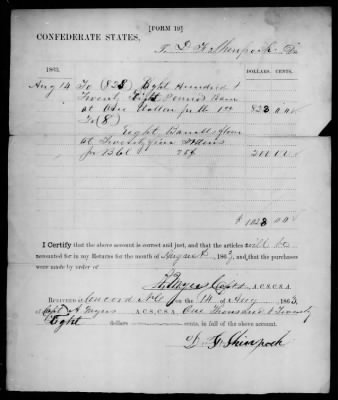 [FORM 19]
CONFEDERATE STATES,
To D. F. Shinpock Dr.
1863. DOLLARS. CENTS.
Aug 14 To (828) Eight Hundred &
Twenty Eight Pounds
at One Dollar pr lb 1.00 828 00
To (8)
Eight Barrells flour
at Twenty five Dollars
pr Bbl 25$ 200 00
$ 1028 00
I Certify that the above account is correct and just, and that the articles will be
accounted for in my Returns for the month of August 1863, and that the purchases
were made by order of
A. Myers Capt & A. C. S. C. S. A.
RECEIVED at Concord N.C. on the 14 of Aug 1863,
of Capt A Myers A. C. S. C. S. A. One Thousand & Twenty
Eight dollars cents, in full of the above account.
D. F. Shinpock